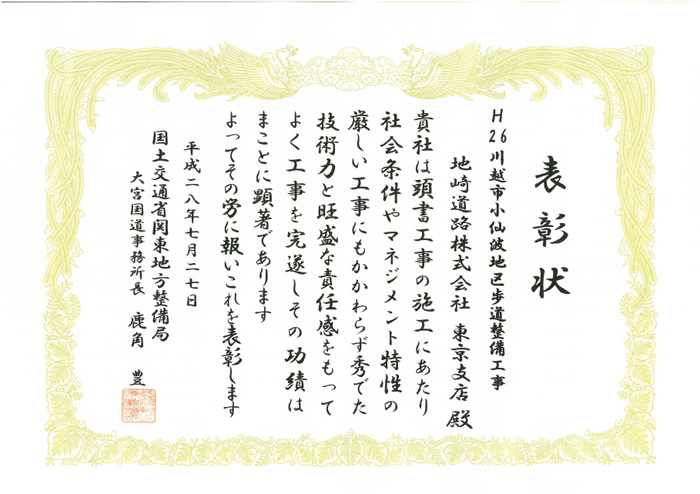 表彰状
H26川越市小仙波地区歩道整備工事
地崎道路株式会社 東京支店 殿
貴社は頭書工事の施工にあたり
社会条件やマネジメント特性の
厳しい工事にもかかわらず秀でた
技術力と旺盛な責任感をもって
よく工事を完遂しその功績は
まことに顕著であります
よってその労に報いこれを表彰します
平成二八年七月二七日
国土交通省関東地方整備局
大宮国道事務所長 鹿角 豊